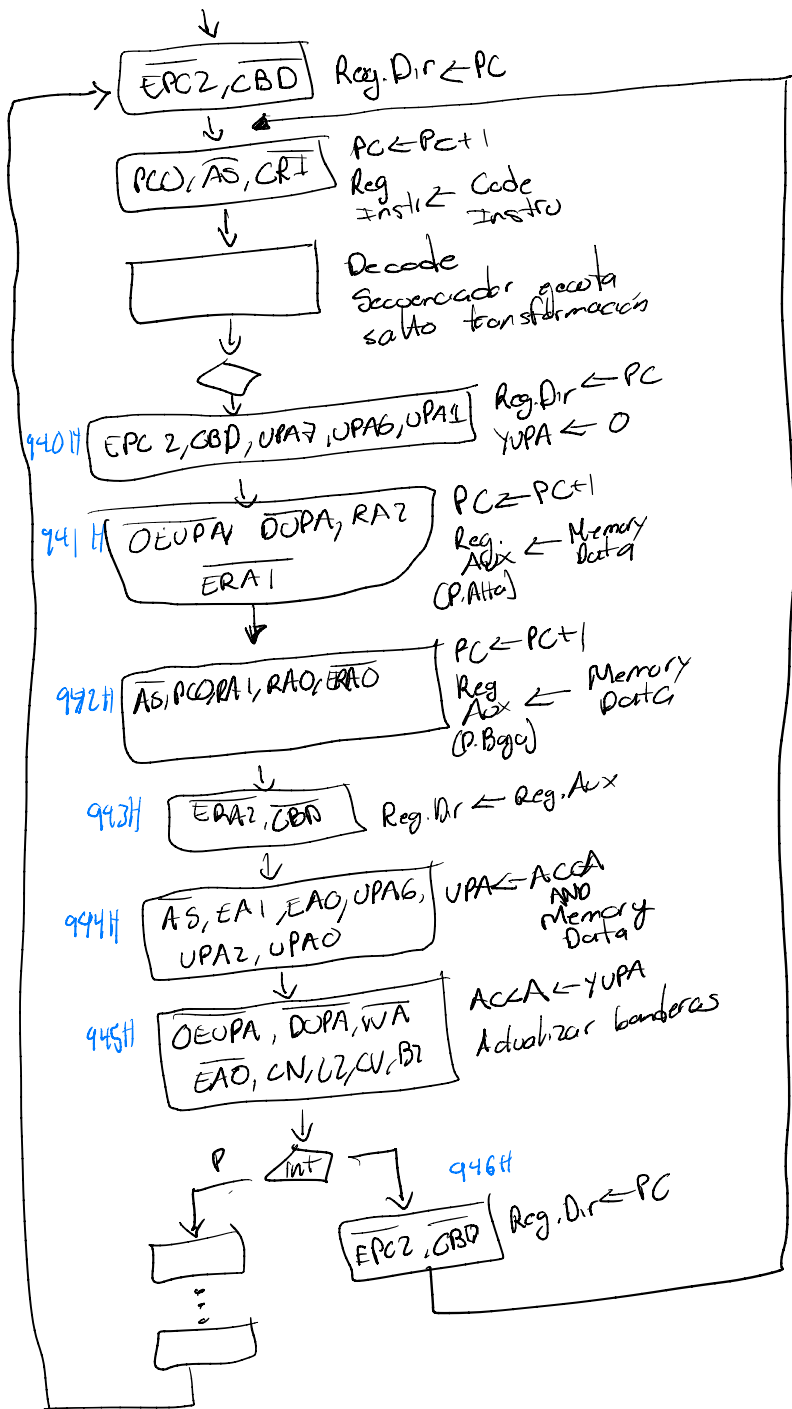 E̅P̅C̅2̅, C̅B̅D̅
Reg.Dir ← PC
PC0, A̅S̅, C̅R̅I̅
PC ← PC+1
Reg
Instr ← Code
Instru
Decode
Secuenciador ejecuta
salto transformación
940H
EPC2, CBD, UPA7, UPA6, UPA1
Reg.Dir ← PC
YUPA ← 0
941H
O̅E̅U̅P̅A̅, D̅U̅P̅A̅, RA2
E̅R̅A̅1̅
PC ← PC+1
Reg.
Aux ← Memory
Data
(P.Alta)
942H
A̅S̅, PC0, RA1, RA0, E̅R̅A̅0̅
PC ← PC+1
Reg
Aux ← Memory
Data
(P.Baja)
943H
E̅R̅A̅2̅, C̅B̅D̅
Reg.Dir ← Reg.Aux
944H
A̅S̅, EA1, EA0, UPA6,
UPA2, UPA0
UPA ← ACCA
AND
Memory
Data
945H
O̅E̅U̅P̅A̅, D̅U̅P̅A̅, W̅A̅
E̅A̅0̅, CN, CZ, CV, B2
ACCA ← YUPA
Actualizar banderas
P
int
946H
E̅P̅C̅2̅, C̅B̅D̅
Reg.Dir ← PC